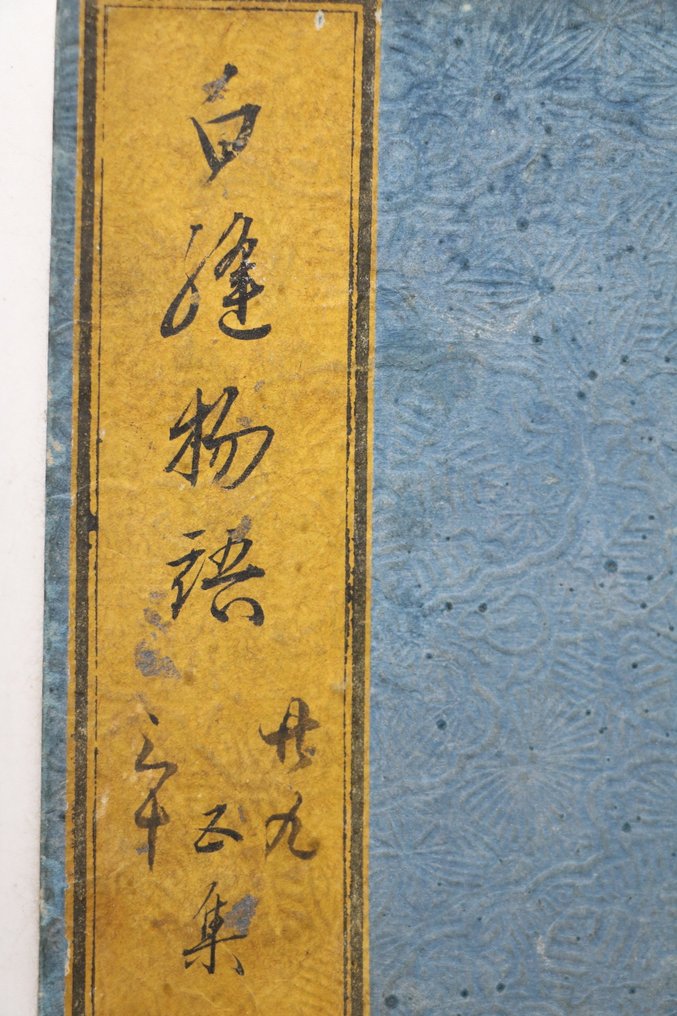 白縫物語
廿九
三十
五集